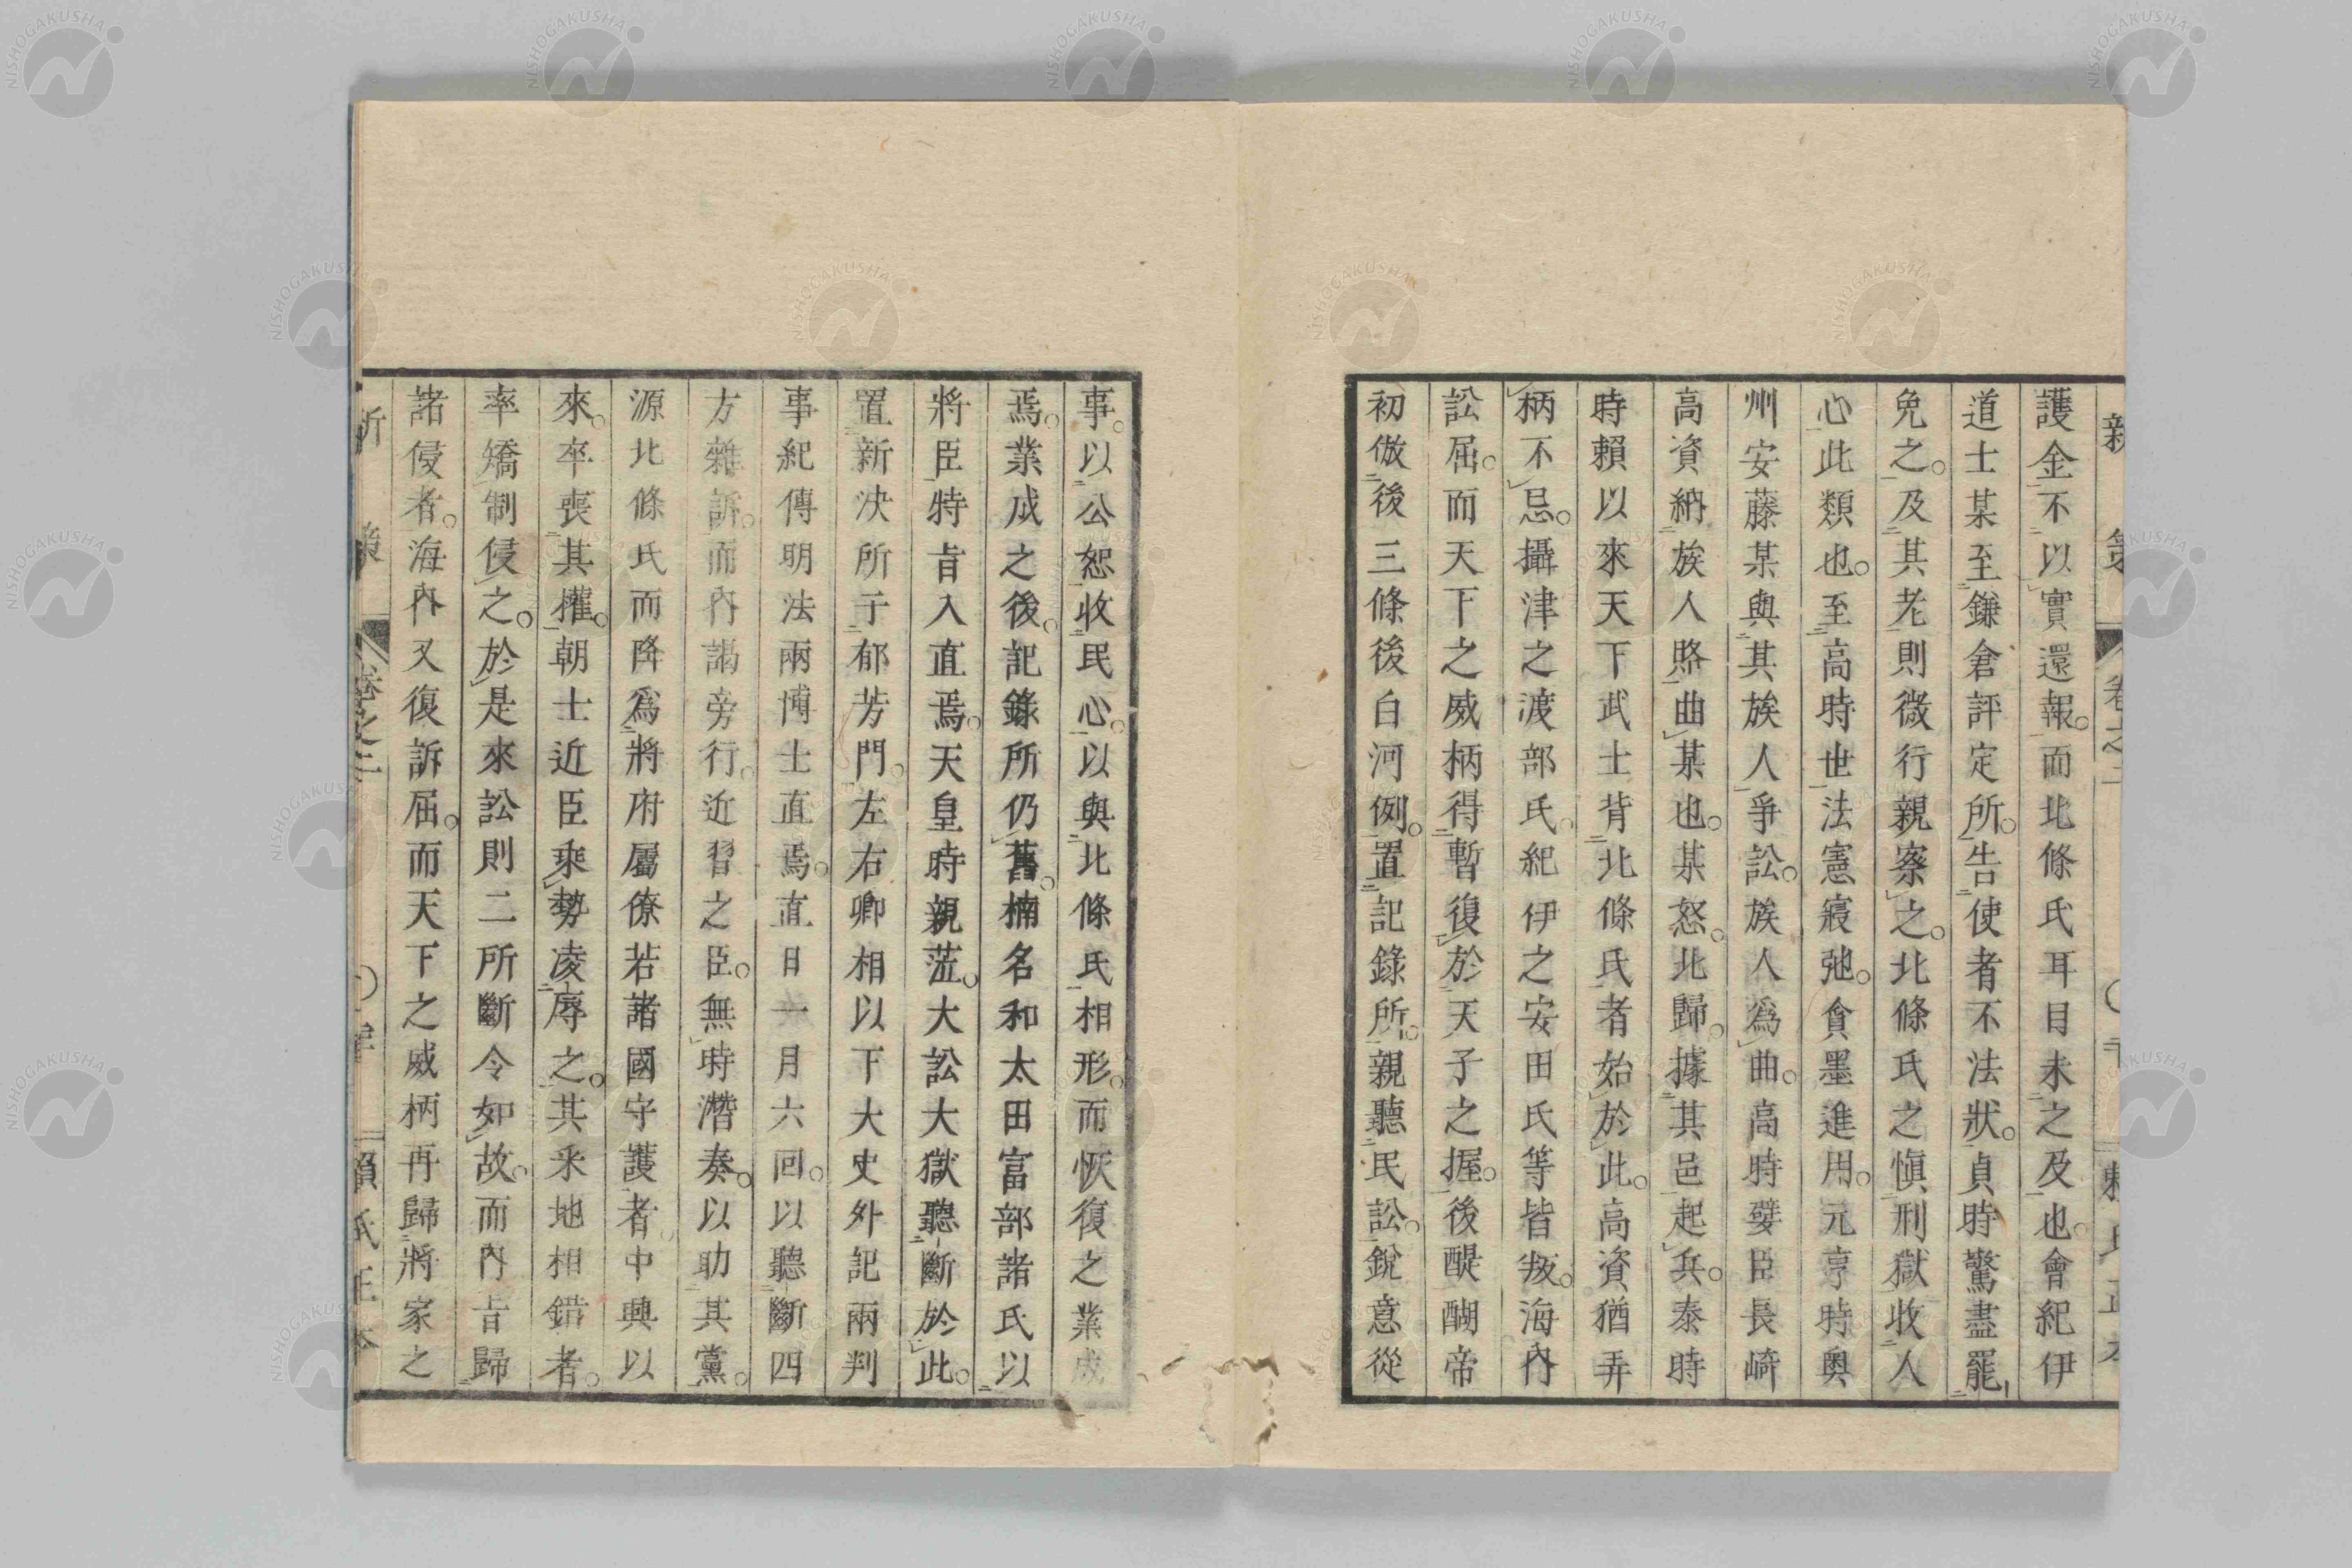 護金不以實還報。而北條氏耳目未之及也。會紀伊
道士某至鎌倉評定所。告使者不法狀。貞時驚盡罷
免之。及其老則微行親察之。北條氏之愼刑獄收人
心此類也。至高時世法憲寢弛。貪墨進用。元亨時奧
州安藤某與其族人爭訟。族人爲曲。高時嬖臣長崎
高資納族人賂曲某也。某怒。北歸。據其邑起兵。泰時
時賴以來天下武士背北條氏者始於此。高資猶弄
柄不忌。攝津之渡部氏。紀伊之安田氏等皆叛。海內
訟屈。而天下之威柄得暫復於天子之握。後醍醐帝
初倣後三條後白河例。置記錄所。親聽民訟。銳意從
事。以公恕收民心。以與北條氏相形。而恢復之業成
焉。業成之後。記錄所仍舊。楠名和太田富部諸氏以
將臣特旨入直焉。天皇時親蒞。大訟大獄聽斷於此。
置新決所于郁芳門。左右卿相以下大史外記兩判
事紀傳明法兩博士直焉。直日一月六回。以聽斷四
方雜訴。而內謁旁行。近習之臣。無時潛奏。以助其黨。
源北條氏而降爲將府屬僚若諸國守護者。中興以
來。卒喪其權。朝士近臣乘勢凌辱之。其釆地相錯者。
率矯制侵之。於是來訟則二所斷令如故。而內旨歸
諸侵者。海內又復訴屈。而天下之威柄再歸將家之
新策 卷之二 賴氏正本
NISHOGAKUSHA